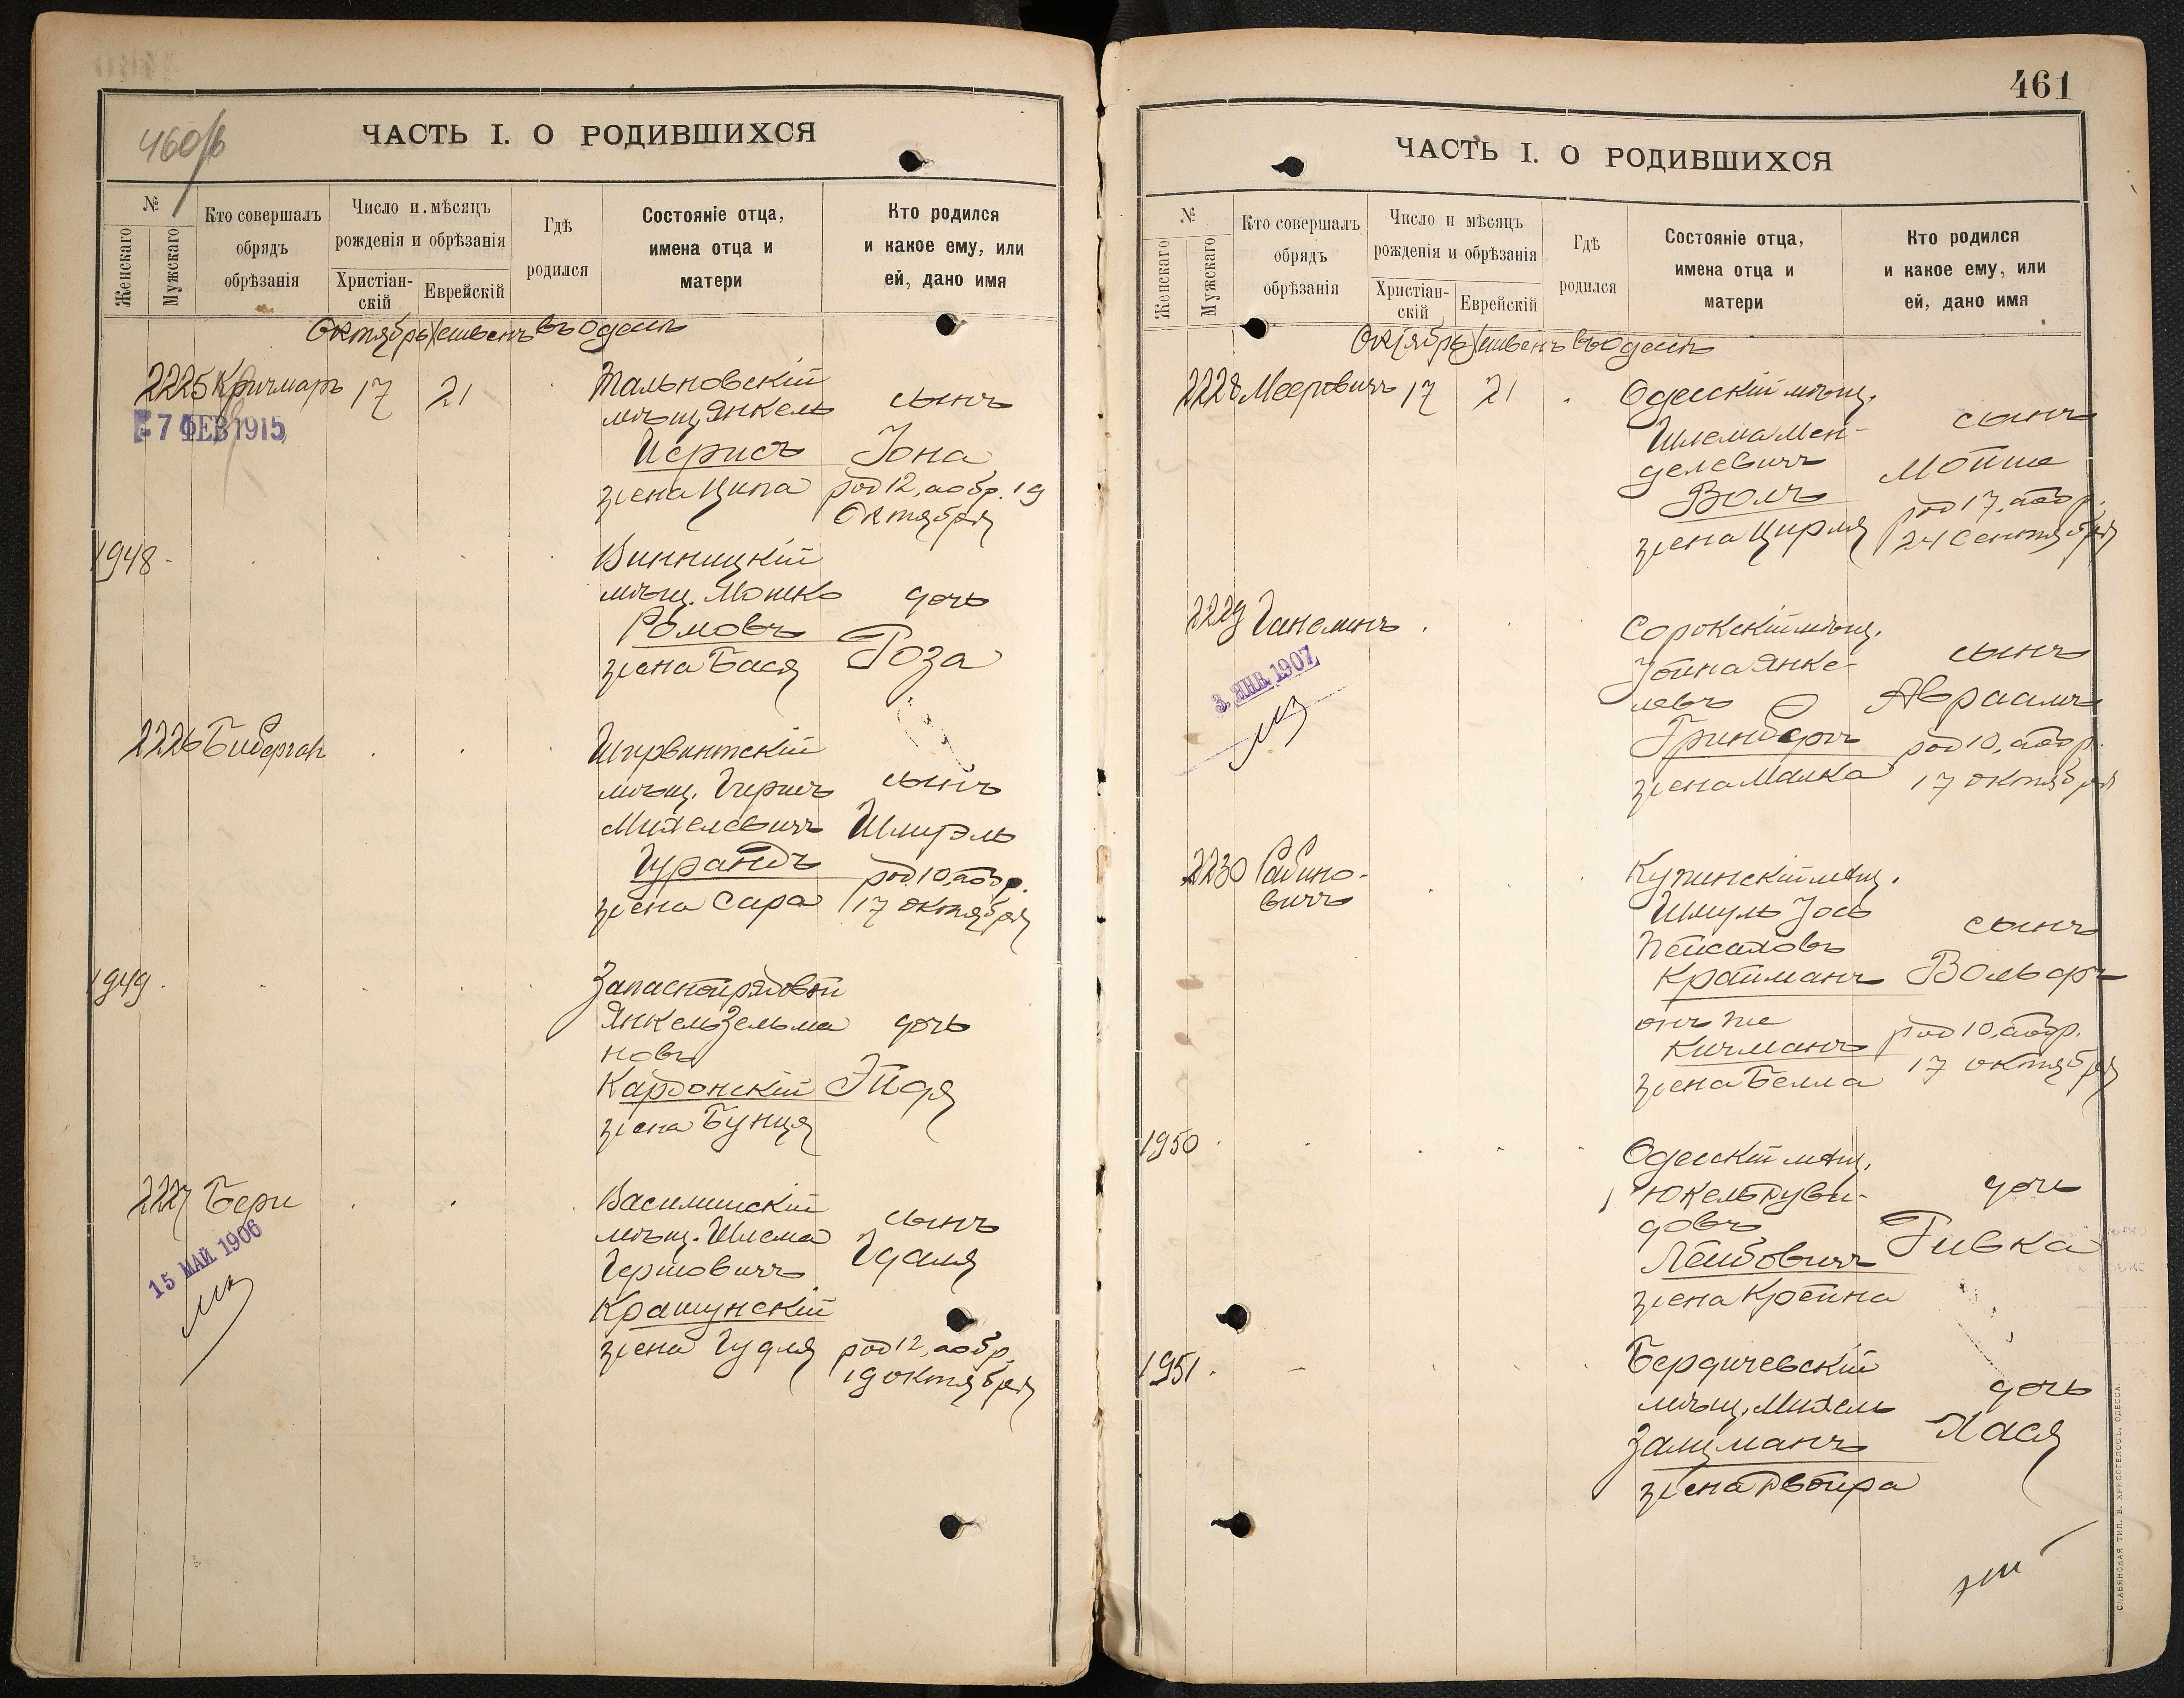 460/б
ЧАСТЬ I. О РОДИВШИХСЯ
№
Женскаго
Мужскаго
Кто совершалъ
обрядъ
обрѣзанія
Число и мѣсяцъ
рожденія и обрѣзанія
Христіан-
скій
Еврейскій
Гдѣ
родился
Состояніе отца,
имена отца и
матери
Кто родился
и какое ему, или
ей, дано имя
Октябрь Хешвенъ въ Одессѣ
2225 Кричмаръ 17 21
7 ФЕВ 1915
Тальновскій
мѣщ. Янкель
жена Ципа
сынъ
Іона
род 12, а обр. 19
Октября
1948
Винницкій
мѣщ. Мошко
Ромовъ
жена Бася
дочь
Роза
2226
Ширвинтскій
мѣщ. Гиршъ
Михелевичъ
жена Сара
сынъ
Шмуэль
род. 10, а обр.
17 октября
1949
Запасной рядовой
Янкель Зельма
новъ
Кардонскій
жена Бунця
дочь
Эйдя
2227 Бери
15 МАЙ 1906
Василишскій
мѣщ. Шлема
Гершовичъ
Крашунскій
жена Гудля
сынъ
Гдаля
род 12, а обр.
19 октября
461
ЧАСТЬ I. О РОДИВШИХСЯ
№
Женскаго
Мужскаго
Кто совершалъ
обрядъ
обрѣзанія
Число и мѣсяцъ
рожденія и обрѣзанія
Христіан-
скій
Еврейскій
Гдѣ
родился
Состояніе отца,
имена отца и
матери
Кто родился
и какое ему, или
ей, дано имя
Октябрь Хешвенъ въ Одессѣ
2228 Мееровичъ 17 21
Одесскій мѣщ.
Шлема Мен-
делевичъ
Волъ
жена Цирля
сынъ
Мойше
род 17, а обр.
24 Сентября
2229
3. ЯНВ. 1907
Сорокскій мѣщ.
Іойна Янке-
левъ
Гринбергъ
жена Малка
сынъ
Авраамъ
род 10, а обр.
17 октября
2230 Рабино-
вичъ
Купинскій мѣщ.
Шмуль Іось
Пейсаховъ
Крайманъ
онъ же
Кичманъ
жена Белла
сынъ
Вольфъ
род 10, а обр.
17 октября
1950
Одесскій мѣщ.
Юкель Руви-
довъ
Лейбовичъ
жена Крейна
дочь
Ривка
1951
Бердичевскій
мѣщ. Михель
Залцманъ
жена Двойра
дочь
Хася
СЛАВЯНСКАЯ ТИП. Е. ХРИСОГЕЛОСЪ, ОДЕССА.